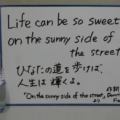 Life can be so sweet
on the sunny side of
the street
ひなたの道を歩けば、
人生は輝くよ。
"On the sunny side of the street,"